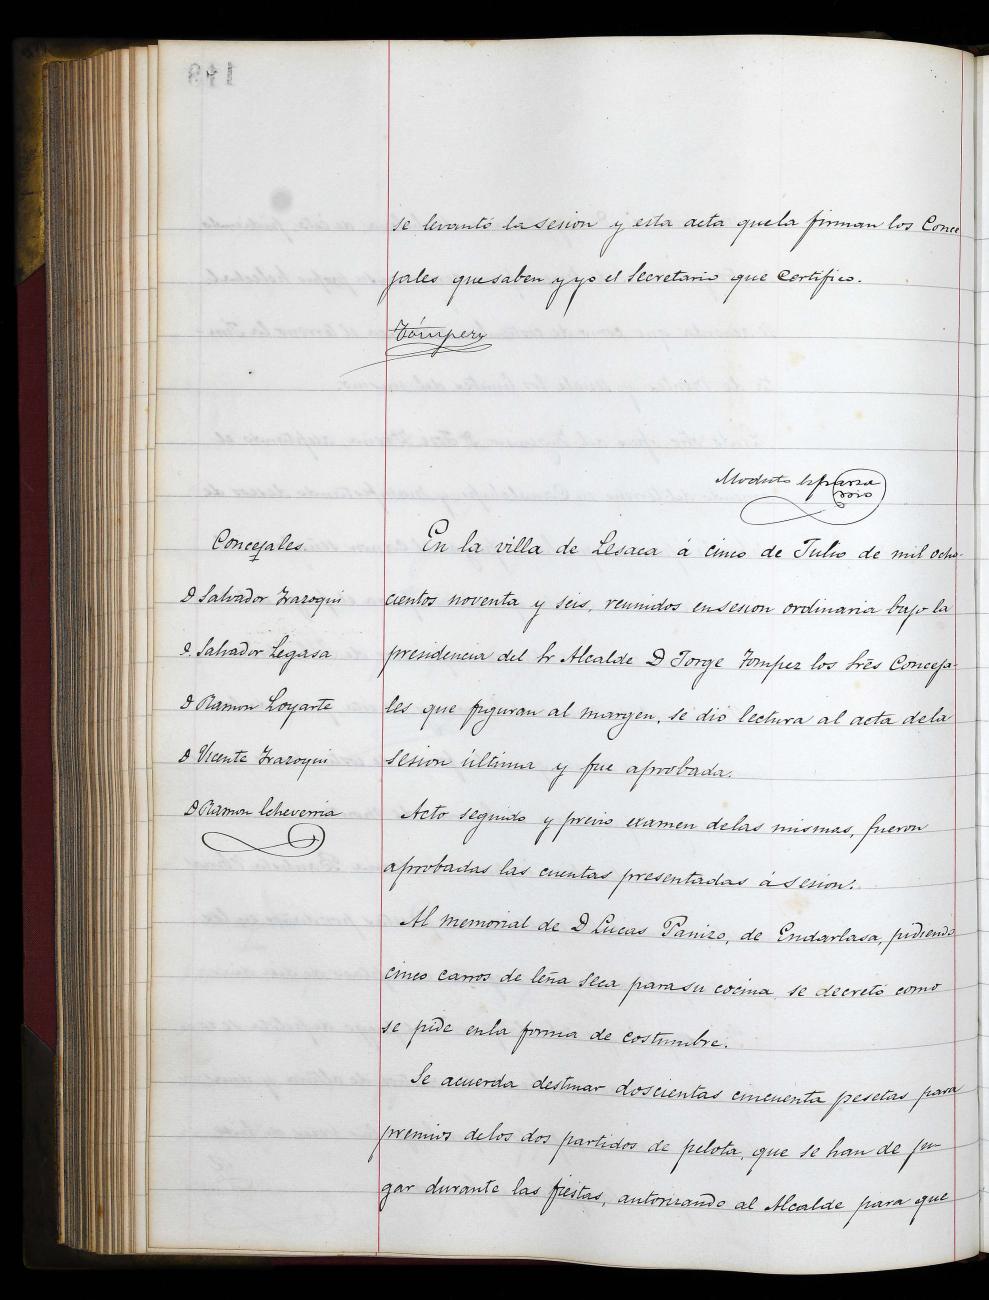 se levantó la sesion y esta acta que la firman los Conce
jales que saben y yo el Secretario que Certifico.
Tómpez
Modesto Esparza
srio
Concejales
D Salvador Irazoqui
D. Salvador Legasa
D Ramon Loyarte
D Vicente Irazoqui
D Ramon Echeverria
En la villa de Lesaca á cinco de Julio de mil ocho-
cientos noventa y seis, reunidos en sesion ordinaria bajo la
presidencia del Sr Alcalde D Jorge Tompez los Srēs Conceja-
les que figuran al margen, se dió lectura al acta de la
sesion última y fue aprobada.
Acto seguido y previo examen de las mismas, fueron
aprobadas las cuentas presentadas á sesion.
Al memorial de D Lucas Panizo, de Endarlasa, pidiendo
cinco carros de leña seca para su cocina se decretó como
se pide en la forma de costumbre.
Se acuerda destinar doscientas cincuenta pesetas para
premios de los dos partidos de pelota, que se han de ju-
gar durante las fiestas, autorizando al Alcalde para que